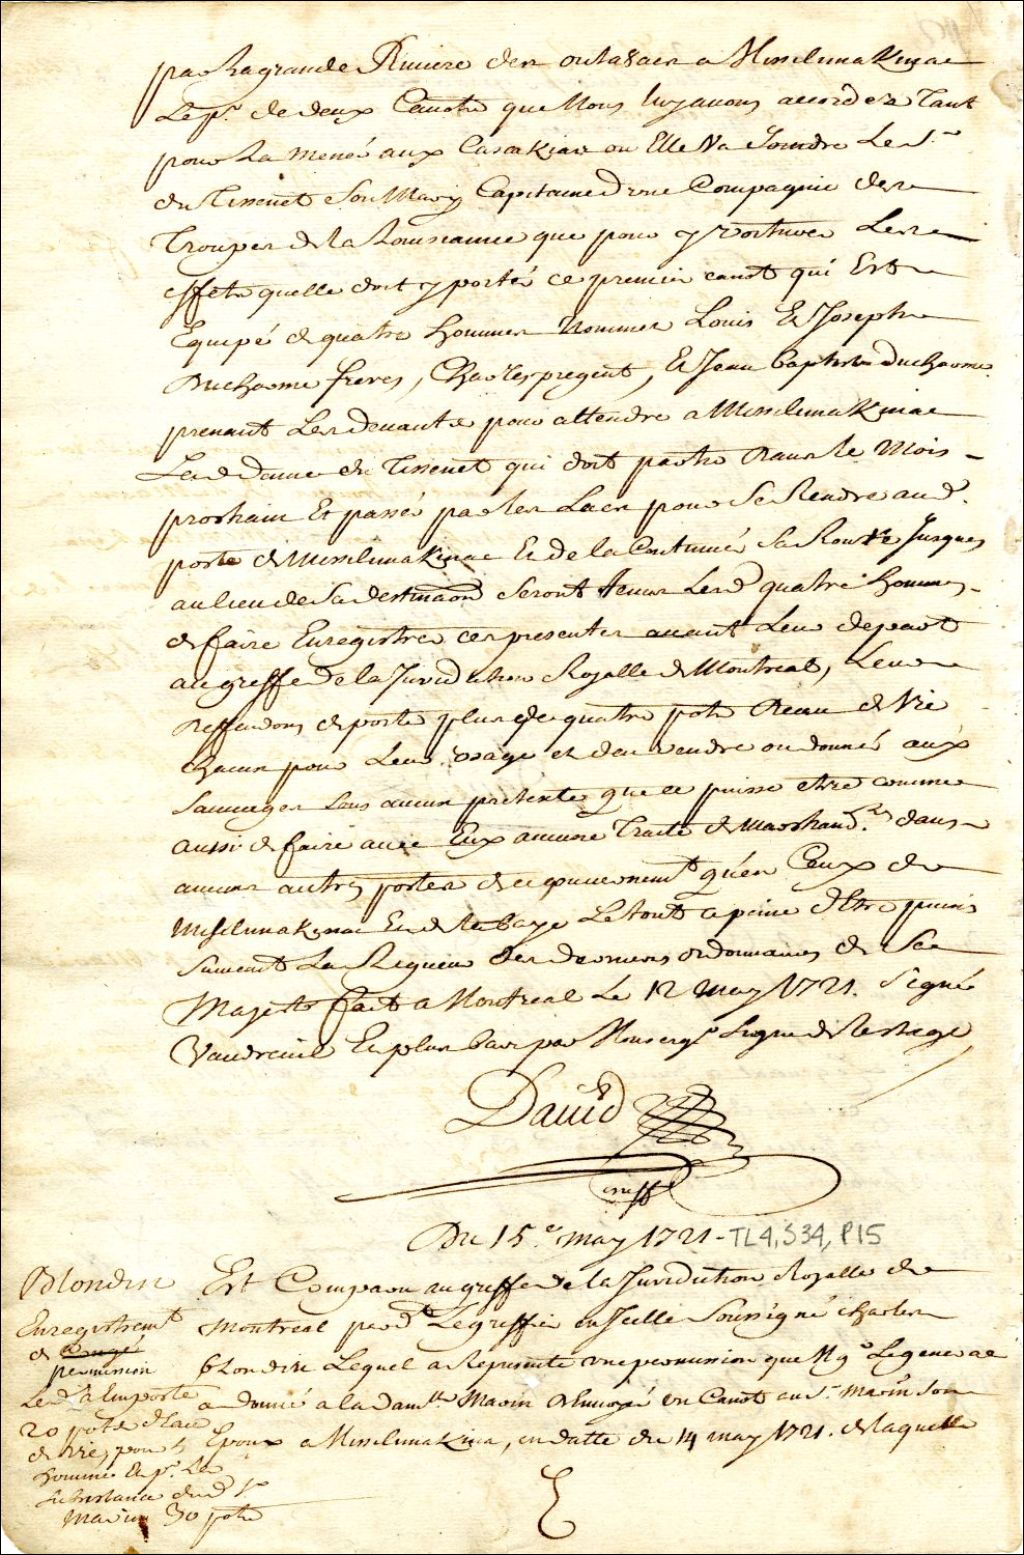 par La grande Riviere des outa8acs a Missilimakinac
Le pr. de deux Canots que Nous luy avons accordez Tant
pour La mener aux Cascakias ou Elle Va Joindre Le Sr.
du Tissenet Son Mary Capitaine d'une Compagnie des
Troupes de la Louisianne que pour y voiturer Les
effets quelle doit y porter ce premier canot qui Est
Equipé de quatre hommes Nommes Louis Et Joseph
Ducharme freres, Charles pregent, Et Jean baptiste Ducharme
prenant Les devants pour attendre a Missilimakinac
Lad Dame du Tissenet qui doit partir Dans le Mois
prochain Et passer par les Lacs pour Se Rendre aud.
poste de Missilimakinac Et de la Continuer Sa Route Jusques
au lieu de Sa destinaon Seront tenus Lesd quatre hommes
de faire Enregistrer ces presentes avant Leur depart
au greffe de la Juridiction Royalle de Montreal, Leur
Deffendons de porter plus de quatre pots Deau de Vie
chacun pour Leur usage et den vendre ou donner aux
Sauvages Sous aucun pretexte que ce puisse etre comme
aussi de faire avec Eux aucune Traite de Marchand.es dans
aucuns autres postes de ce gouvernemt. qu'en Ceux de
Missilimakinac Et de la baye Le tout a peine d'Etre punis
Suivant La Rigueur des dernieres ordonnances de Sa
Majesté fait a Montreal Le 12 may 1721. Signé
Vaudreuil Et plus bas par Monseigr. Signé de Lestage
David
greff
Du 15.e may 1721 - TL4, S34, P15
Est Comparu au greffe de la Juridiction Royalle de
Montreal pard. Le greffier en Icelle Soussigné Charles
blondin Lequel a Representé une permission que Mgr Le general
a donné a la damlle Marin d'Envoyer un Canot au Sr. Marin Son
Epoux a Missilimakina, en datte du 14 may 1721. de laquelle
Blondin
Enregistremt
de Congé
permission
Led. a Emporté
20 pots d'Eau
de Vie, pour 5
hommes Et pr. La
Subsistance dud Sr
Marin 30 pots